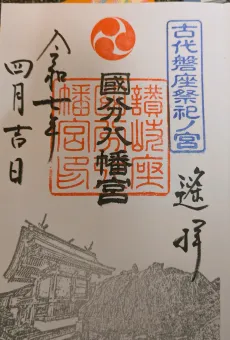 古代磐座祭祀ノ宮
遙拝
國分八幡宮
讃岐座
國分八
幡宮印
令和七年
四月吉日